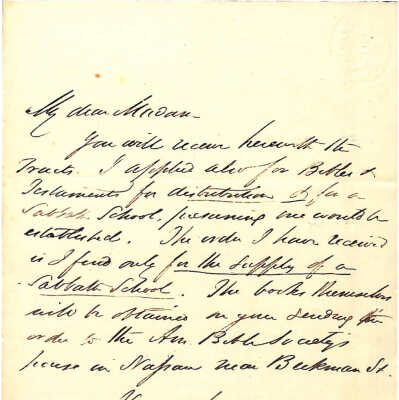 My dear Madam -
You will receive herewith the
Tracts. I applied also for Bibles &
Testaments for distribution & for a
Sabbath School, presuming one would be
established. The order I have received
is I find only for the supply of a
Sabbath School. The books themselves
will be obtained on your sending the
order to the Am. Bible Society's
house in Nassau near Beekman St.